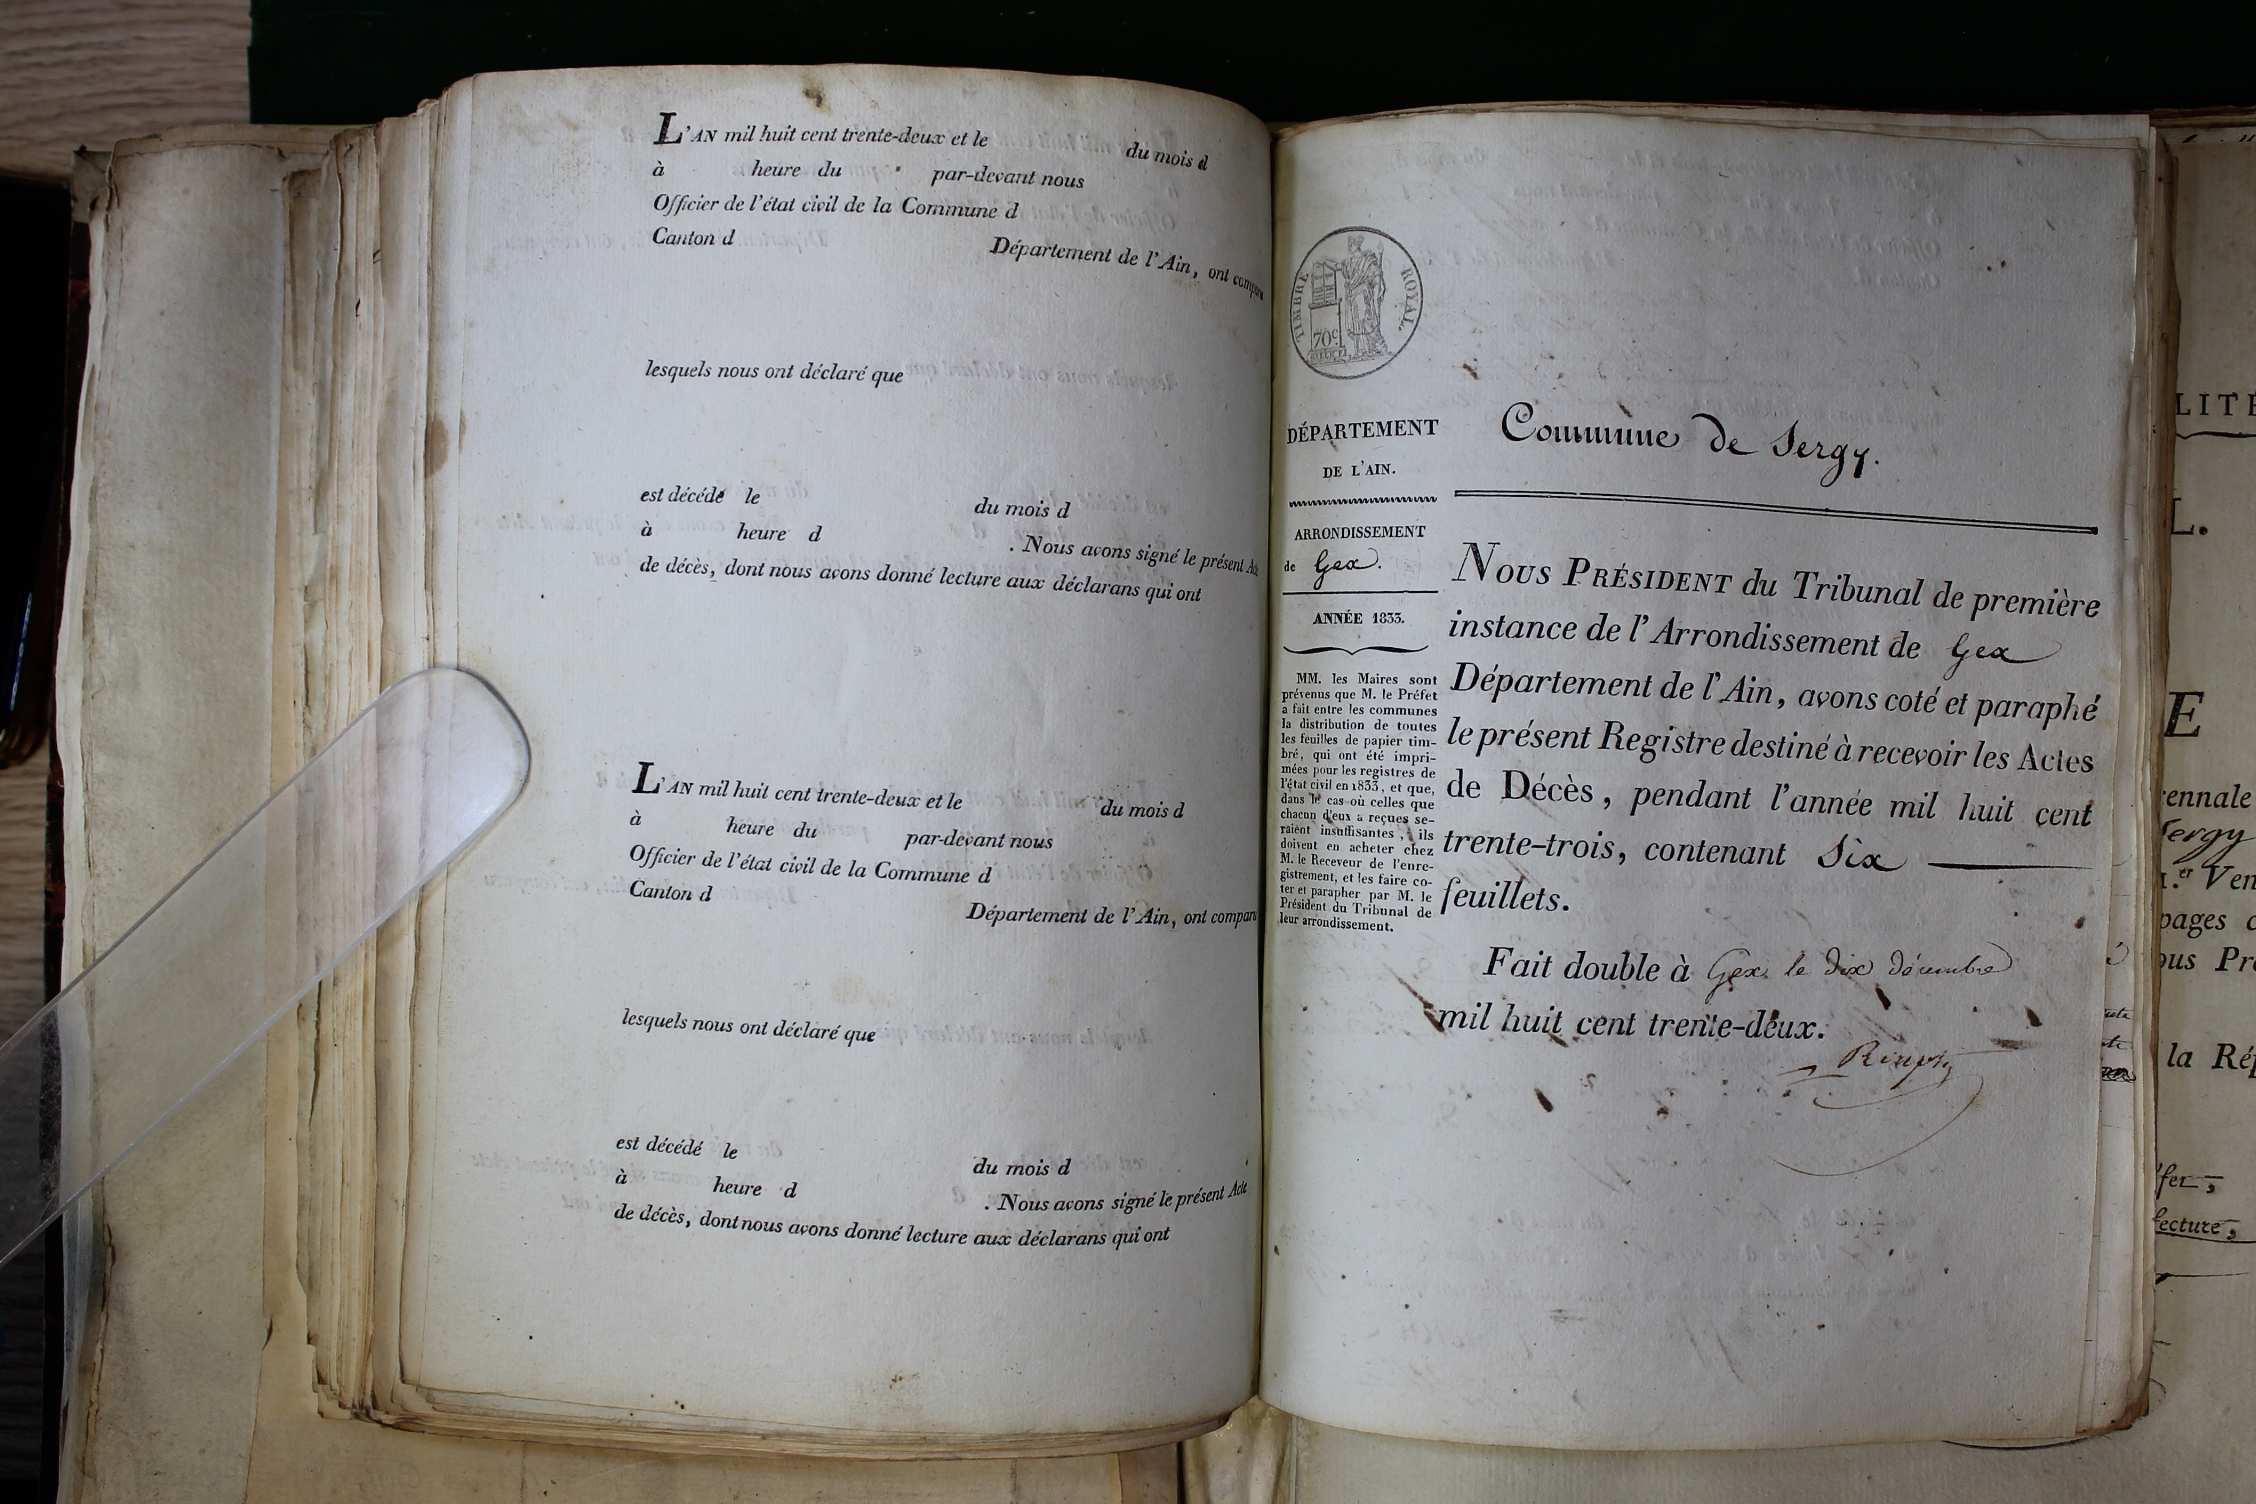 L'AN mil huit cent trente-deux et le du mois d
à heure du par-devant nous
Officier de l'état civil de la Commune d
Canton d Département de l'Ain, ont comparu
lesquels nous ont déclaré que
est décédé le du mois d
à heure d . Nous avons signé le présent Acte
de décès, dont nous avons donné lecture aux déclarans qui ont
L'AN mil huit cent trente-deux et le du mois d
à heure du par-devant nous
Officier de l'état civil de la Commune d
Canton d Département de l'Ain, ont comparu
lesquels nous ont déclaré que
est décédé le du mois d
à heure d . Nous avons signé le présent Acte
de décès, dont nous avons donné lecture aux déclarans qui ont
TIMBRE ROYAL.
70c
DÉPARTEMENT
DE L'AIN.
ARRONDISSEMENT
de Gex.
ANNÉE 1833.
MM. les Maires sont
prévenus que M. le Préfet
a fait entre les communes
la distribution de toutes
les feuilles de papier tim-
bré, qui ont été impri-
mées pour les registres de
l'état civil en 1833, et que,
dans le cas où celles que
chacun d'eux a reçues se-
raient insuffisantes, ils
doivent en acheter chez
M. le Receveur de l'enre-
gistrement, et les faire co-
ter et parapher par M. le
Président du Tribunal de
leur arrondissement.
Commune de Sergy.
NOUS PRÉSIDENT du Tribunal de première
instance de l'Arrondissement de Gex
Département de l'Ain, avons coté et paraphé
le présent Registre destiné à recevoir les Actes
de Décès, pendant l'année mil huit cent
trente-trois, contenant Six
feuillets.
Fait double à Gex le dix décembre
mil huit cent trente-deux.
LITÉ
L.
E
ennale
Sergy
1.er Ven
pages c
ous Pré
la Rép
fer,
lecture,